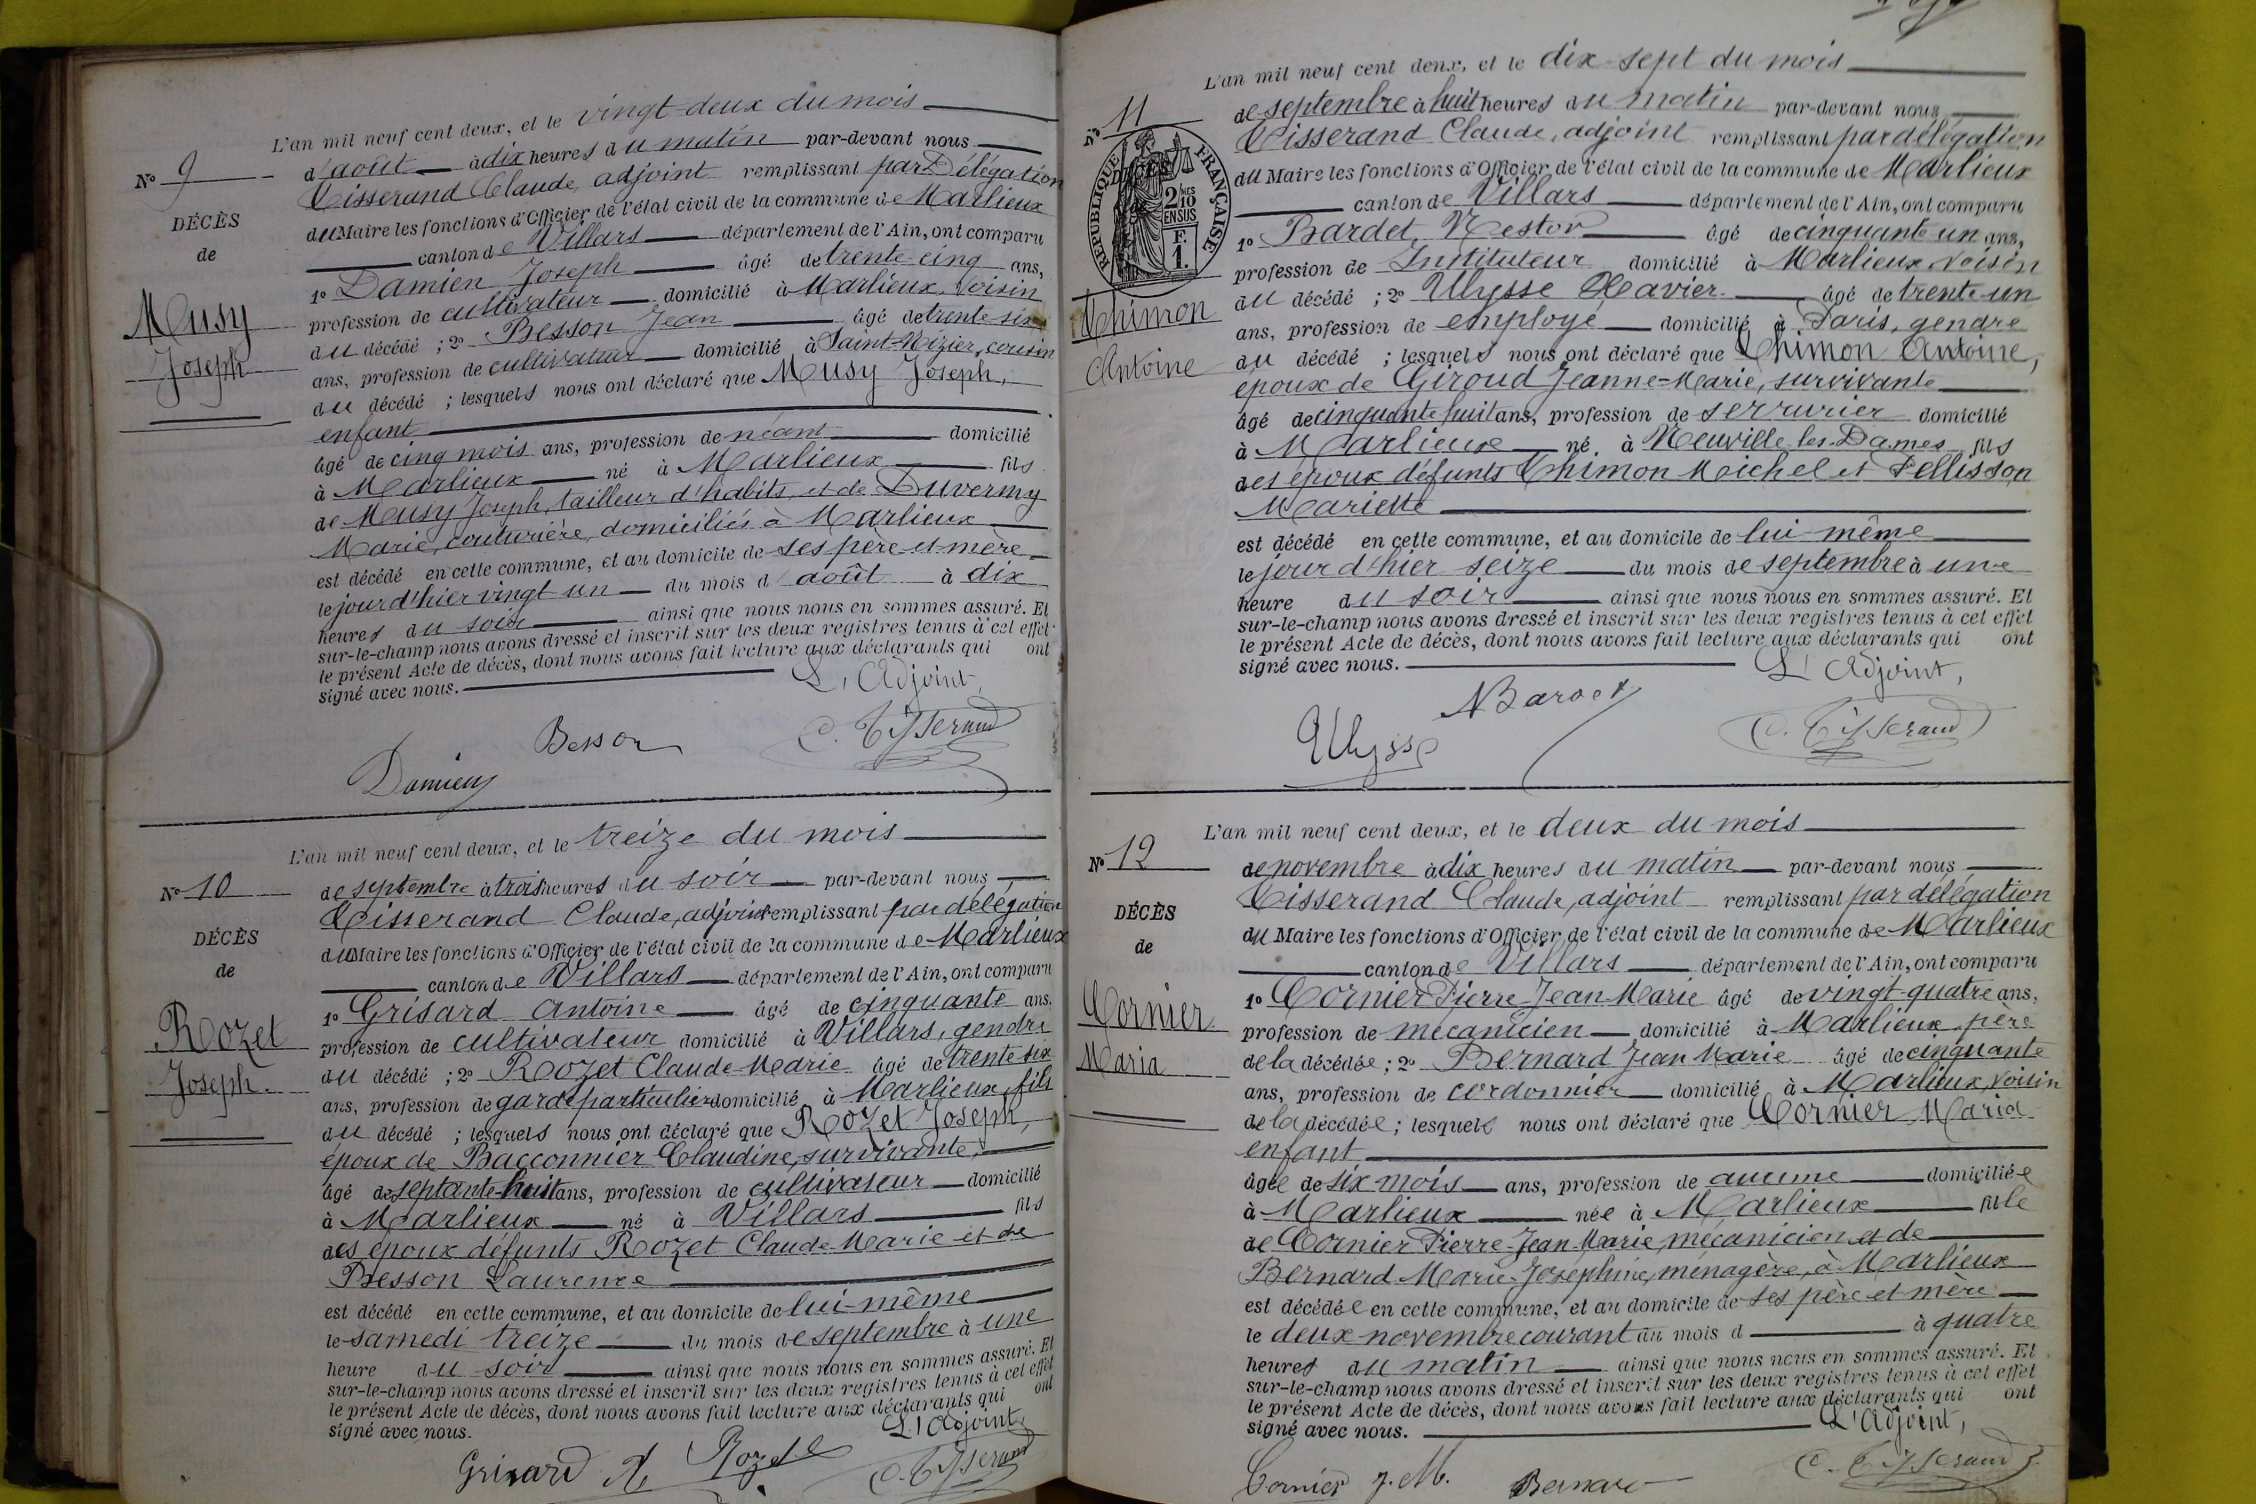 L'an mil neuf cent deux, et le vingt-deux du mois
d'août à dix heures du matin par-devant nous
Tisserand Claude, adjoint remplissant par Délégation
du Maire les fonctions d'Officier de l'état civil de la commune de Marlieux
canton de Villars département de l'Ain, ont comparu
1º Damien Joseph âgé de trente-cinq ans,
profession de cultivateur domicilié à Marlieux, voisin
du décédé ; 2º Besson Jean âgé de trente-six
ans, profession de cultivateur domicilié à Saint-Nizier, cousin
du décédé ; lesquels nous ont déclaré que Musy Joseph,
enfant
âgé de cinq mois ans, profession de néant domicilié
à Marlieux né à Marlieux fils
de Musy Joseph, tailleur d'habits, et de Duvermy
Marie, couturière, domiciliés à Marlieux
est décédé en cette commune, et au domicile de ses père et mère
le jour d'hier vingt un du mois d'août à dix
heures du soir ainsi que nous nous en sommes assuré. Et
sur-le-champ nous avons dressé et inscrit sur les deux registres tenus à cet effet
le présent Acte de décès, dont nous avons fait lecture aux déclarants qui ont
signé avec nous.
L'Adjoint,
Nº 9
DÉCÈS
de
Musy
Joseph
Besson
C. Tisserand
Damien
L'an mil neuf cent deux, et le treize du mois
de septembre à trois heures du soir par-devant nous
Tisserand Claude, adjoint remplissant par délégation
du Maire les fonctions d'Officier de l'état civil de la commune de Marlieux
canton de Villars département de l'Ain, ont comparu
1º Grisard Antoine âgé de cinquante ans,
profession de cultivateur domicilié à Villars, gendre
du décédé ; 2º Rozet Claude-Marie âgé de trente-six
ans, profession de garde particulier domicilié à Marlieux, fils
du décédé ; lesquels nous ont déclaré que Rozet Joseph,
époux de Bacconnier Claudine, survivante,
âgé de septante-huit ans, profession de cultivateur domicilié
à Marlieux né à Villars fils
des époux défunts Rozet Claude-Marie et de
Besson Laurence
est décédé en cette commune, et au domicile de lui-même
le samedi treize du mois de septembre à une
heure du soir ainsi que nous nous en sommes assuré. Et
sur-le-champ nous avons dressé et inscrit sur les deux registres tenus à cet effet
le présent Acte de décès, dont nous avons fait lecture aux déclarants qui ont
signé avec nous.
L'Adjoint,
Nº 10
DÉCÈS
de
Rozet
Joseph.
Grisard A
Rozet
C. Tisserand
L'an mil neuf cent deux, et le dix-sept du mois
de septembre à huit heures du matin par-devant nous
Tisserand Claude, adjoint remplissant par délégation
du Maire les fonctions d'Officier de l'état civil de la commune de Marlieux
canton de Villars département de l'Ain, ont comparu
1º Bardet, Nestor âgé de cinquante-un ans,
profession de Instituteur domicilié à Marlieux, voisin
du décédé ; 2º Ulysse Xavier âgé de trente-un
ans, profession de employé domicilié à Paris, gendre
du décédé ; lesquels nous ont déclaré que Thimon Antoine,
époux de Giroud Jeanne-Marie, survivante
âgé de cinquante-huit ans, profession de serrurier domicilié
à Marlieux né à Neuville-les-Dames fils
des époux défunts Thimon Michel et Pellisson
Mariette
est décédé en cette commune, et au domicile de lui-même
le jour d'hier seize du mois de septembre à une
heure du soir ainsi que nous nous en sommes assuré. Et
sur-le-champ nous avons dressé et inscrit sur les deux registres tenus à cet effet
le présent Acte de décès, dont nous avons fait lecture aux déclarants qui ont
signé avec nous.
L'Adjoint,
Nº 11
DÉCÈS
RÉPUBLIQUE FRANÇAISE
2/10MES
EN SUS
F.
1.
Thimon
Antoine
NBardet
Ulysse
C. Tisserand
L'an mil neuf cent deux, et le deux du mois
de novembre à dix heures du matin par-devant nous
Tisserand Claude, adjoint remplissant par délégation
du Maire les fonctions d'Officier de l'état civil de la commune de Marlieux
canton de Villars département de l'Ain, ont comparu
1º Cornier Pierre-Jean-Marie âgé de vingt-quatre ans,
profession de mécanicien domicilié à Marlieux, père
de la décédée ; 2º Bernard Jean Marie âgé de cinquante
ans, profession de cordonnier domicilié à Marlieux, voisin
de la décédée ; lesquels nous ont déclaré que Cornier Maria
enfant
âgée de six mois ans, profession de aucune domiciliée
à Marlieux née à Marlieux fille
de Cornier Pierre-Jean-Marie, mécanicien et de
Bernard Marie-Joséphine, ménagère, à Marlieux
est décédée en cette commune, et au domicile de ses père et mère
le deux novembre courant du mois d à quatre
heures du matin ainsi que nous nous en sommes assuré. Et
sur-le-champ nous avons dressé et inscrit sur les deux registres tenus à cet effet
le présent Acte de décès, dont nous avons fait lecture aux déclarants qui ont
signé avec nous.
L'Adjoint,
Nº 12
DÉCÈS
de
Cornier
Maria
Cornier J. M.
Bernard
C. Tisserand